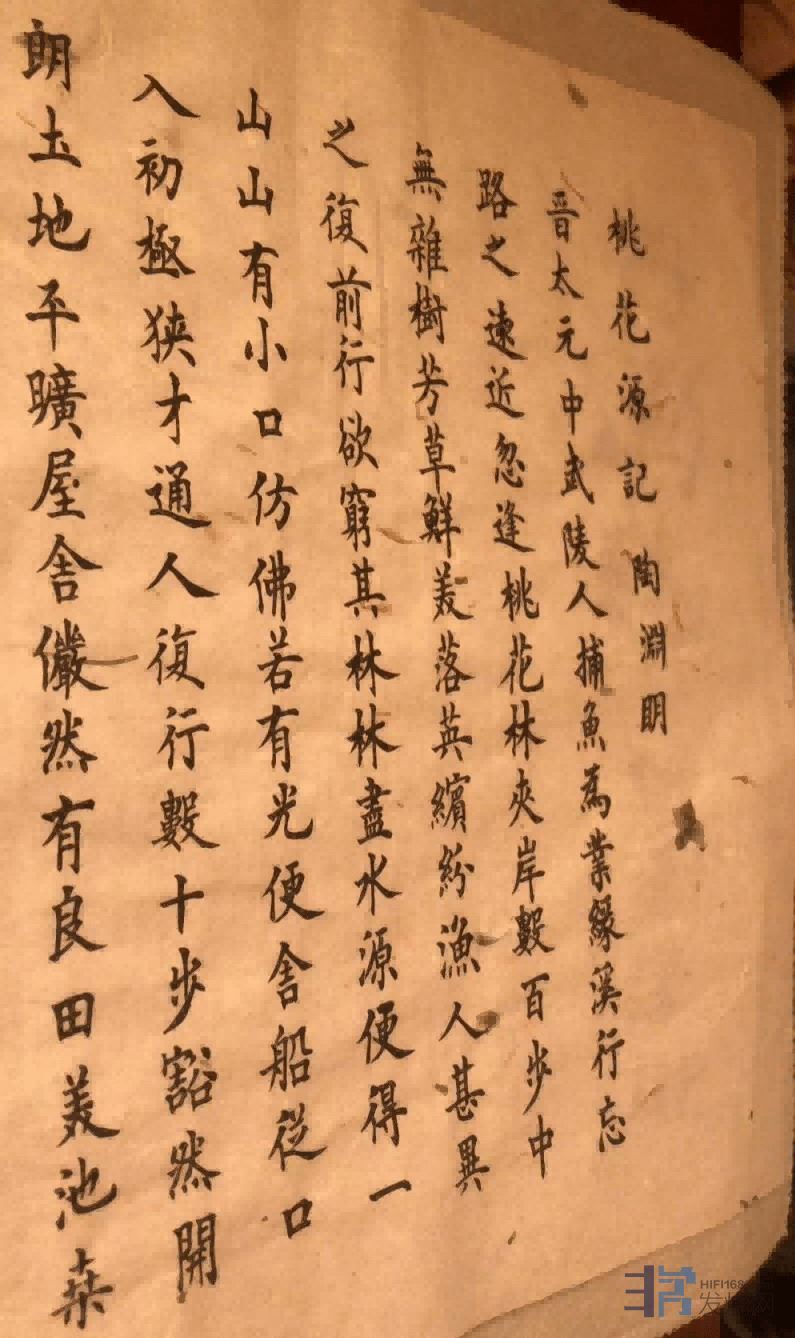 桃花源記 陶淵明
晉太元中武陵人捕魚為業緣溪行忘
路之遠近忽逢桃花林夾岸數百步中
無雜樹芳草鮮美落英繽紛漁人甚異
之復前行欲窮其林林盡水源便得一
山山有小口仿佛若有光便舍船從口
入初極狹才通人復行數十步豁然開
朗土地平曠屋舍儼然有良田美池桒
HIFI168